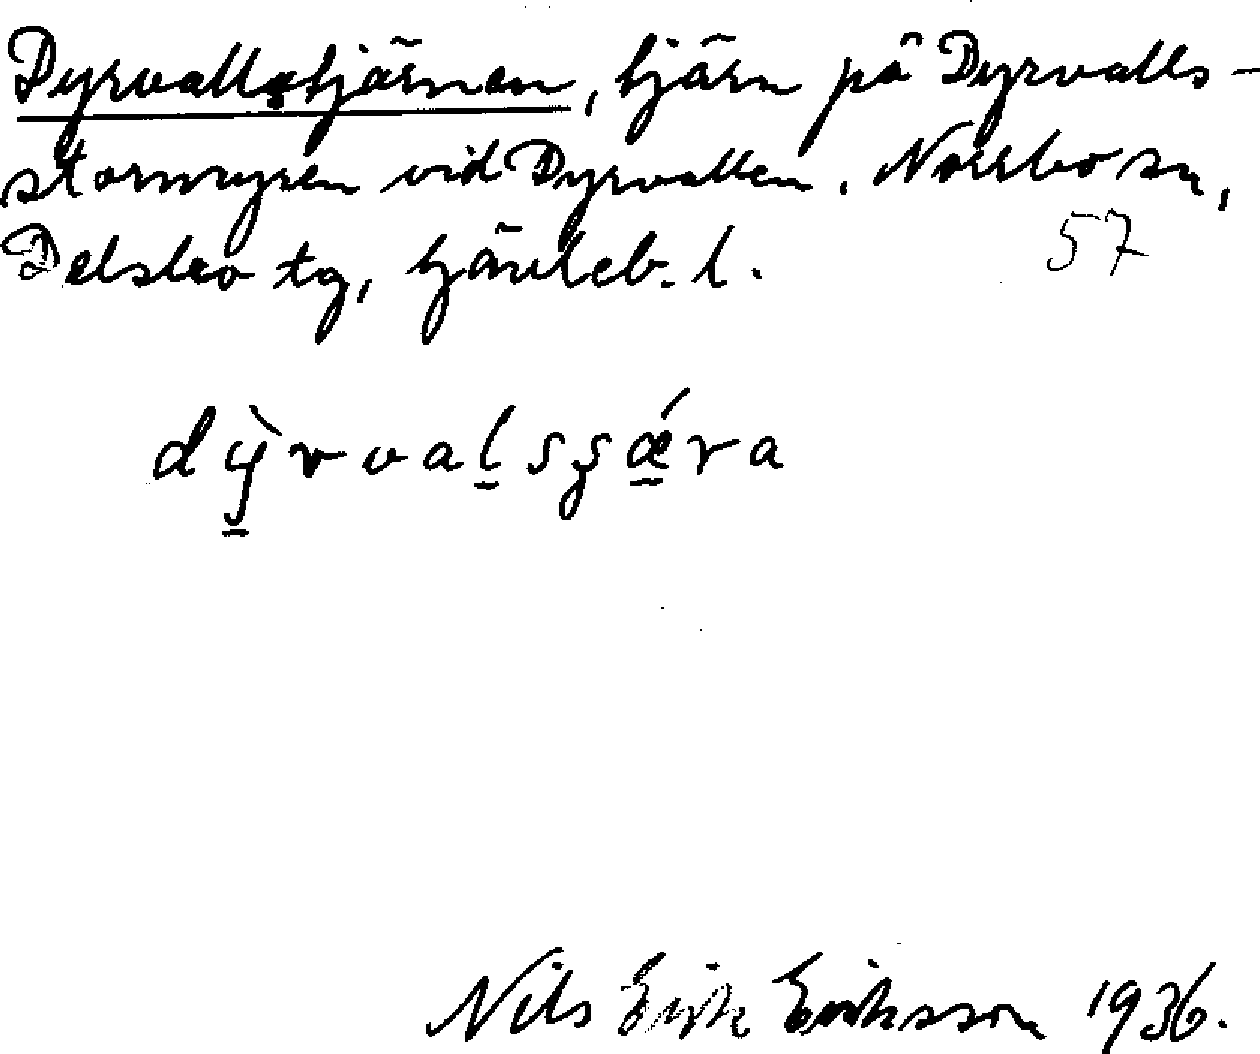 Dyrvallstjärnen, tjärn på Dyrvalls-
stormyren vid Dyrvallen. Norrbo sn,
Delsbo tg, Gävleb. l.
57
dỳrvaḻsʂǽra
Nils Erik Eriksson 1936.